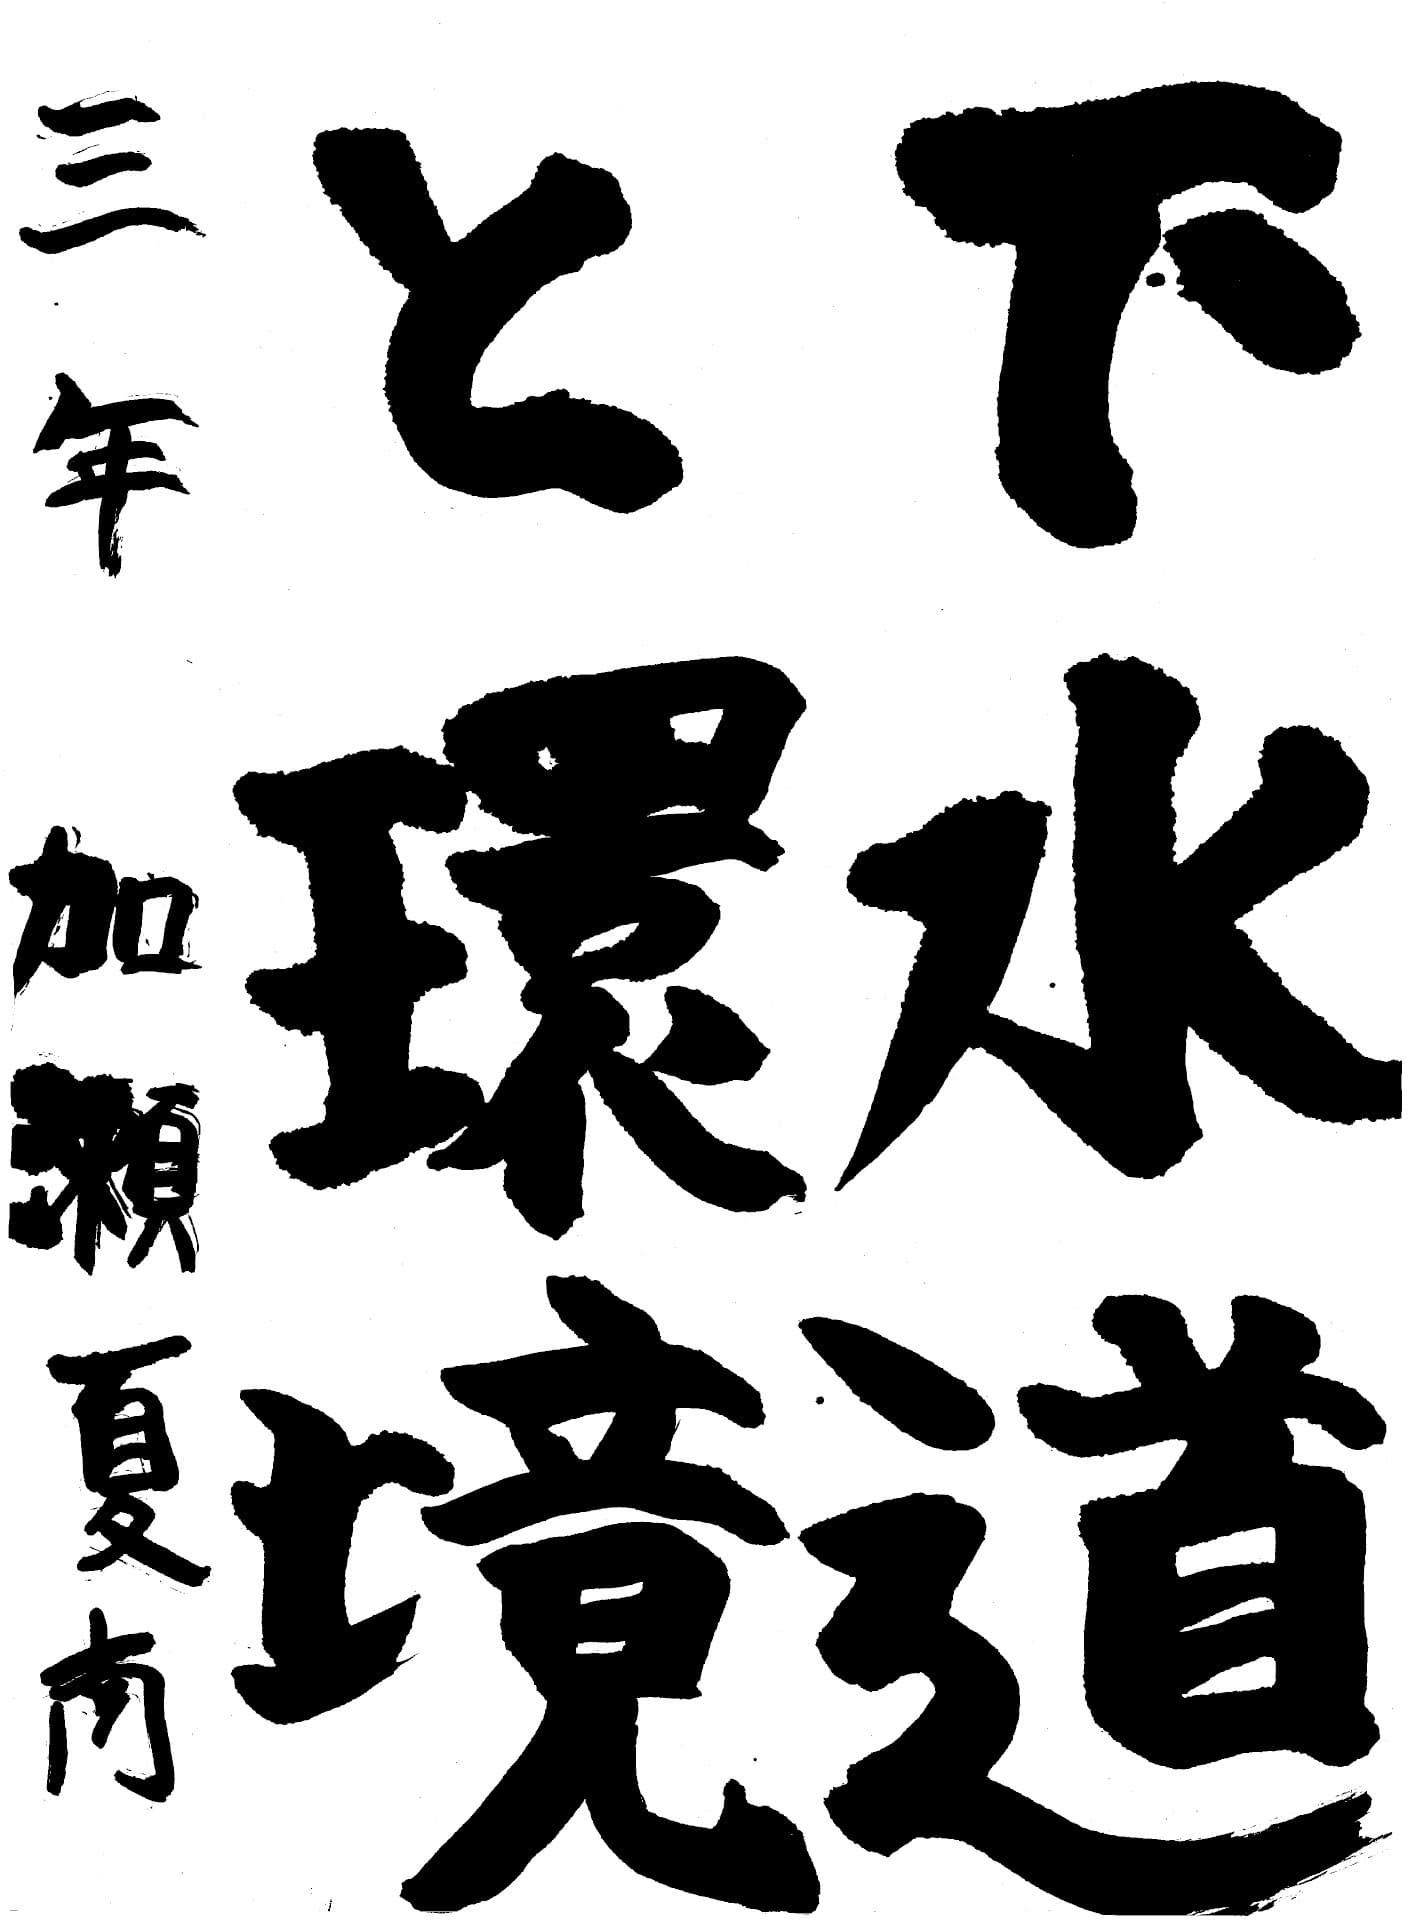 下水道
と環境
三年 加瀬夏